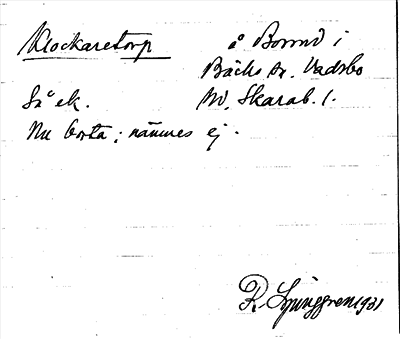 Klockaretorp å Borrud i
Bäcks sn. Vadsbo
Så ek. hd, Skarab. l.
Nu borta; nämnes ej.
R. Ljunggren 1931